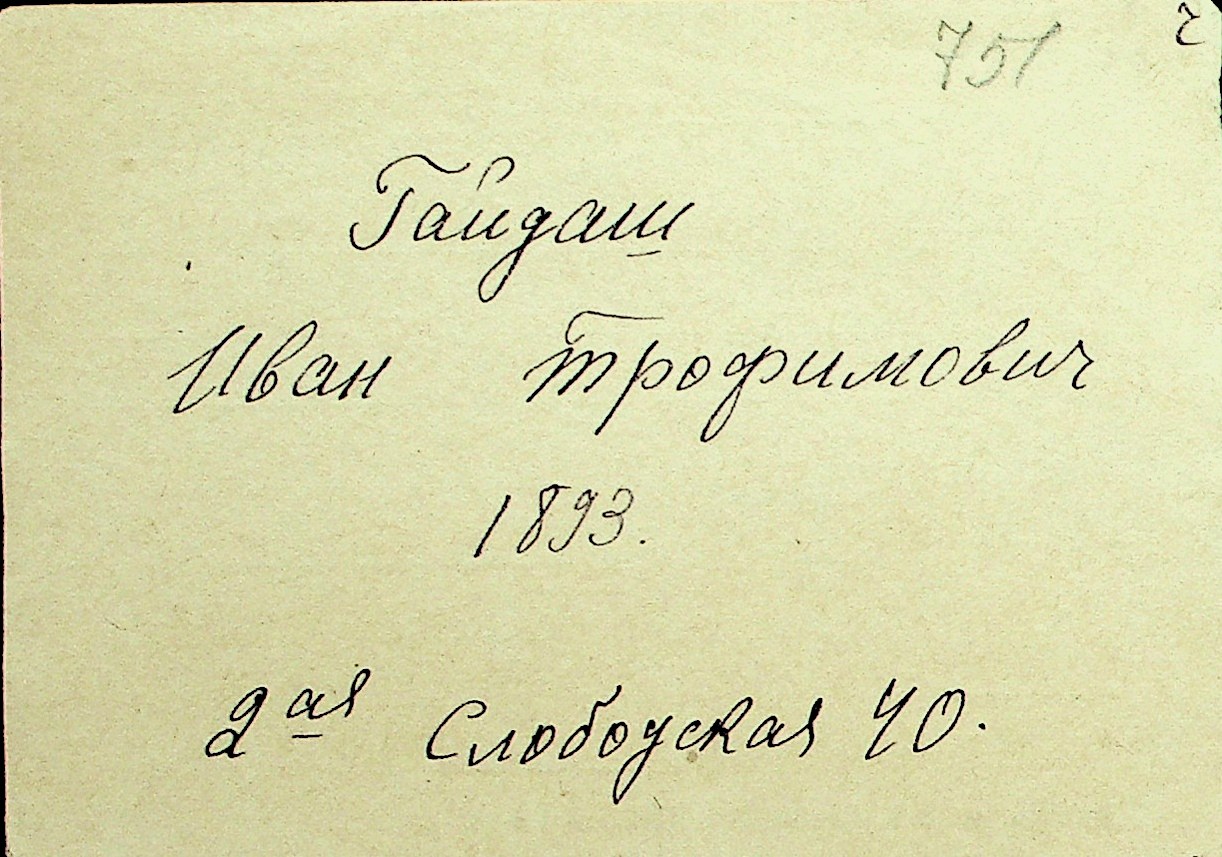 751
Гайдаш
Иван Трофимович
1893.
2ая Слободская 40.